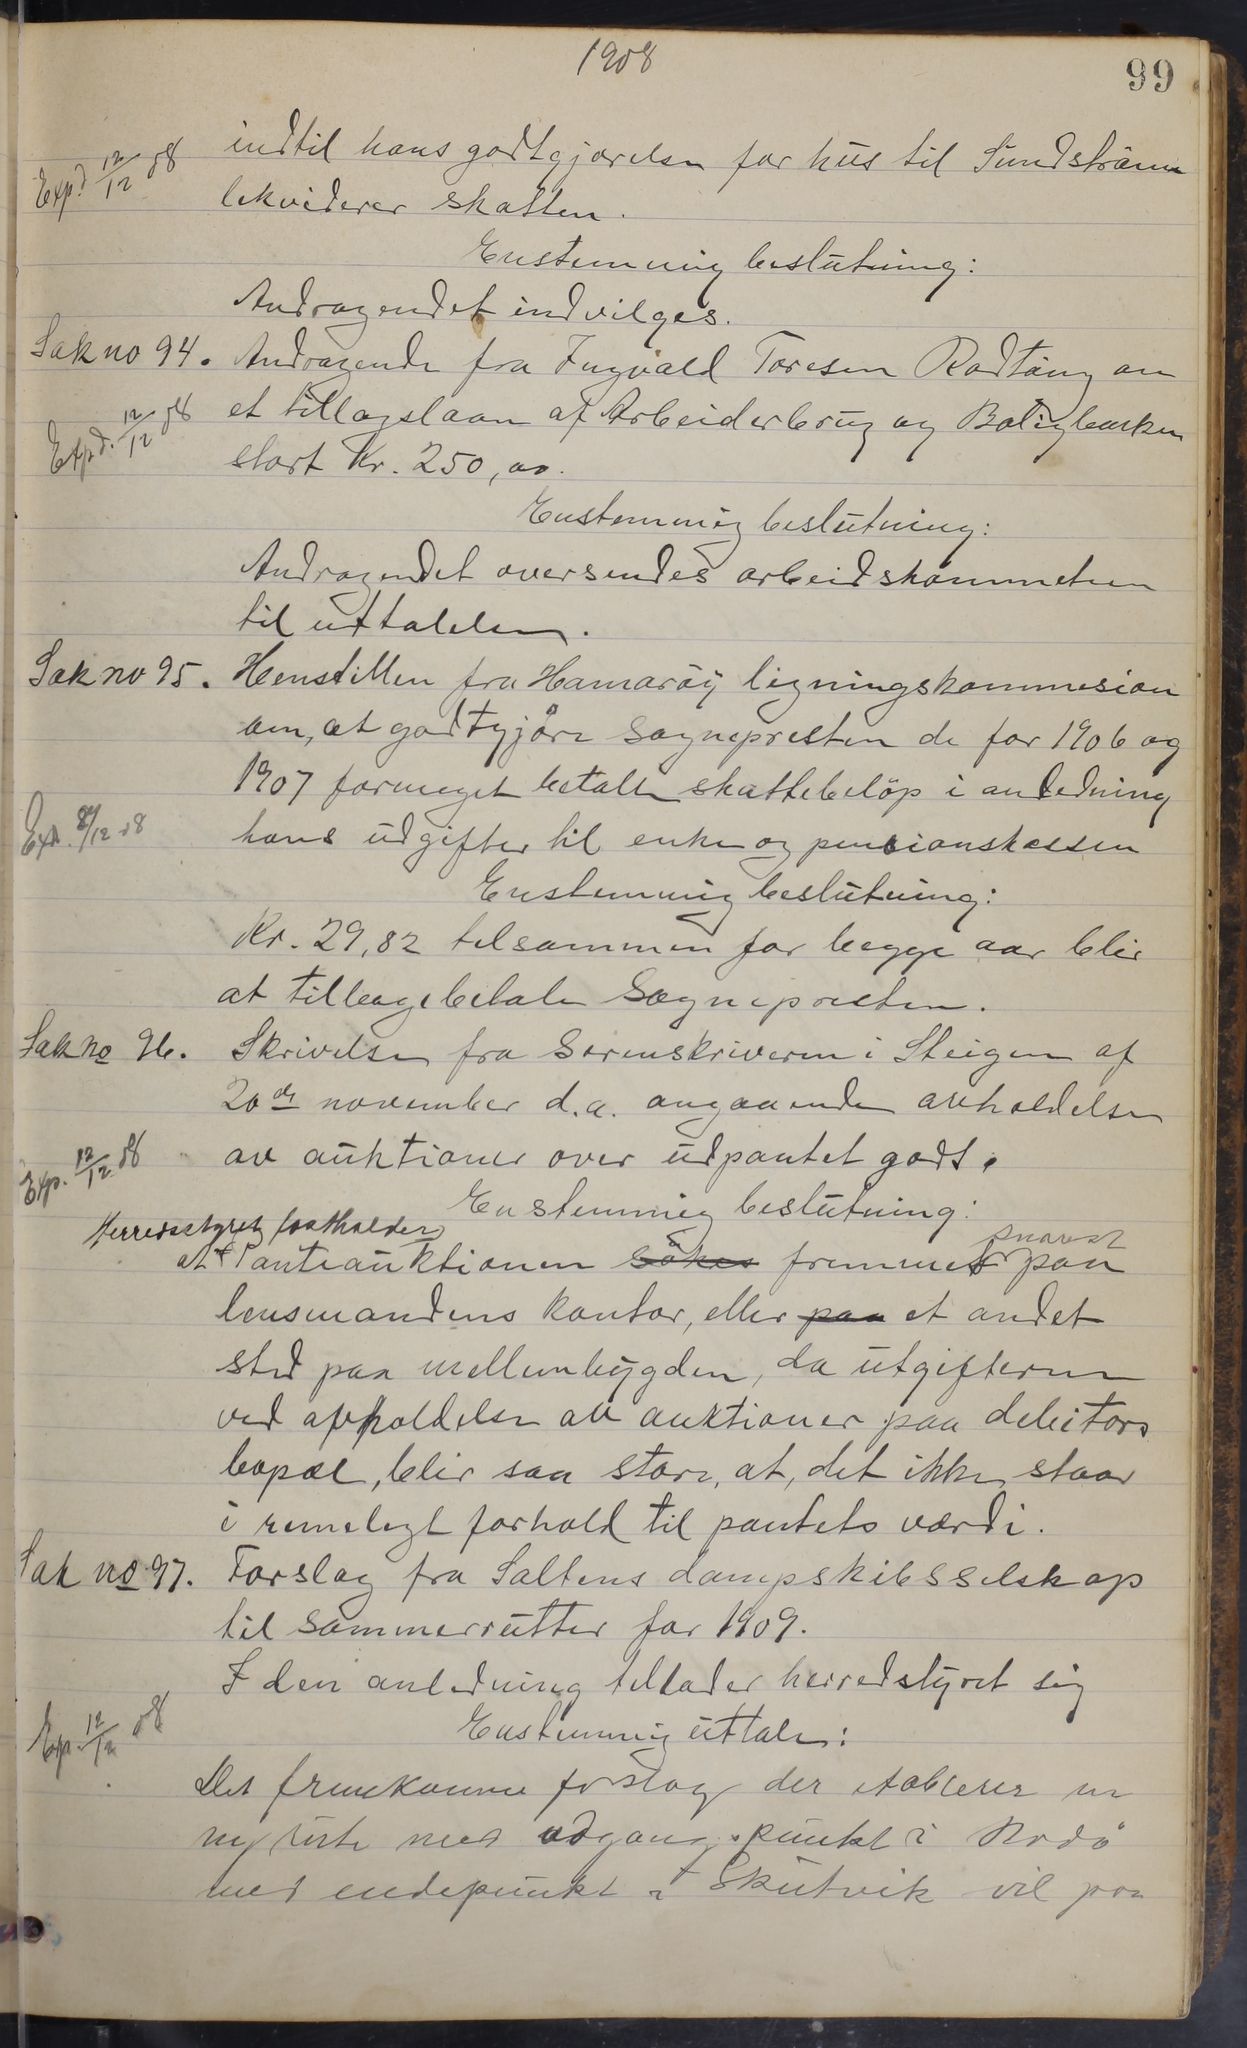 1908
99
Expd 12/12 08
indtil hans godtgjørelse for hus til Sundstrøm
lekviderer skatten.
Enstemmig beslutning:
Andragendet indvilges.
Sak no 94. Andragende fra Ingvald Toresen Rodtang om
Expd. 12/12 08
et tillægslaan af Arbeiderbrug og Boligbanken
stort Kr. 250,00.
Enstemmig beslutning:
Andragendet oversendes arbeidskommeteen
til uttalelse.
Sak no 95. Henstillen fra Hamarøy ligningskommesion
om, at godtgjøre Sognepresten de for 1906 og
1907 formeget betalte skattebeløp i andledning
Exp. 12/12 08
hans udgifter til enke og pensionskassen
Enstemmig beslutning:
Kr. 29,82 tilsammen for begge aar blir
at tilbagebetale Sognepresten.
Sak no 96. Skrivelse fra Sorenskriveren i Steigen af
20de november d.a. angaaende avholdelse
Exp. 12/12 08
av auktioner over udpantet gods.
Enstemmig beslutning:
Herredsstyret fastholder
at Panteauktionen søkes fremmet snarest paa
lensmandens kontor, eller paa et andet
sted paa mellembygden, da utgifterne
ved afholdelse av auktioner paa debitors
bopæl, blir saa store, at, det ikke staar
i remelegt forhold til pantets værdi.
Sak no 97. Forslag fra Saltens dampskibsselskap
til sommerrutter for 1909.
I den anledning tillader herredstyret sig
Exp. 12/12 08
Enstemmig uttale:
Det fremkomne forslag der etablerer en
ny rute med udgangspunkt i Bodø
med endepunkt i Skutvik vil paa